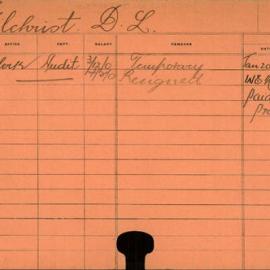 ilchrist. D. L.
OFFICE DEPT. SALARY REMARKS DATE
lerk Audit 3/12/0 Temporary Jan 20
Resigned
Paid